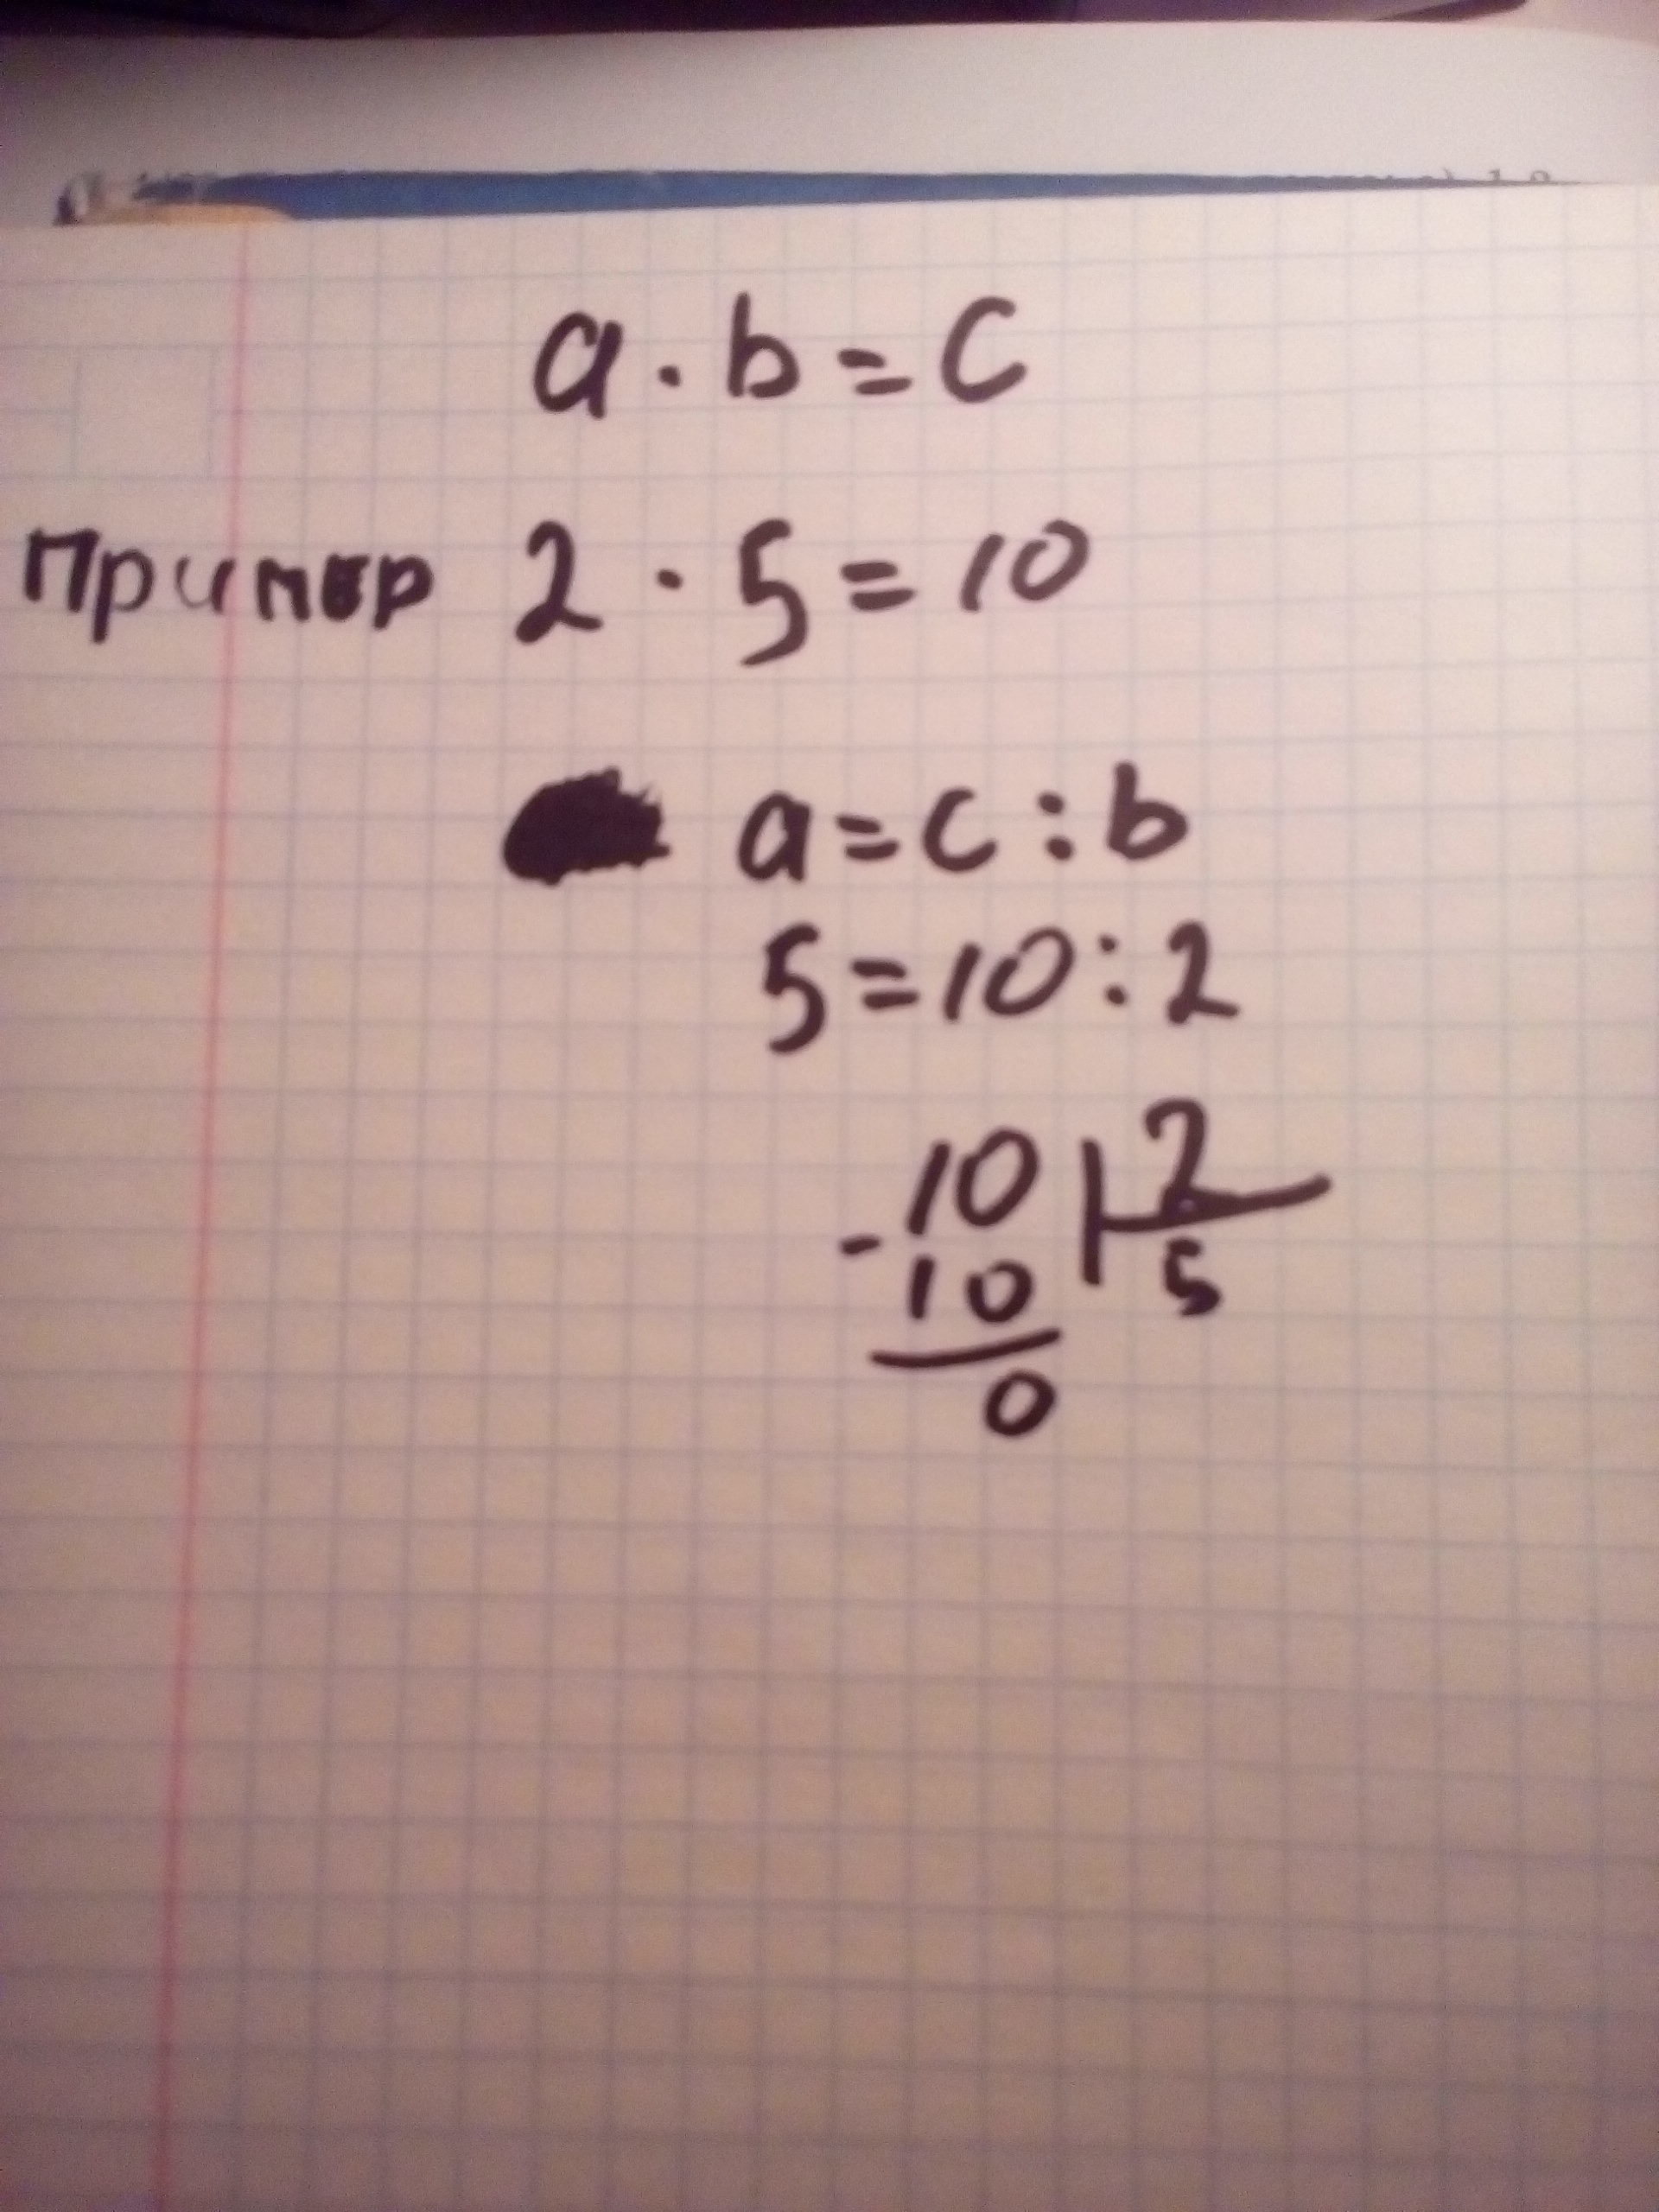 a · b = c
Пример 2 · 5 = 10
a = c : b
5 = 10 : 2
- 10 2
10 5
0